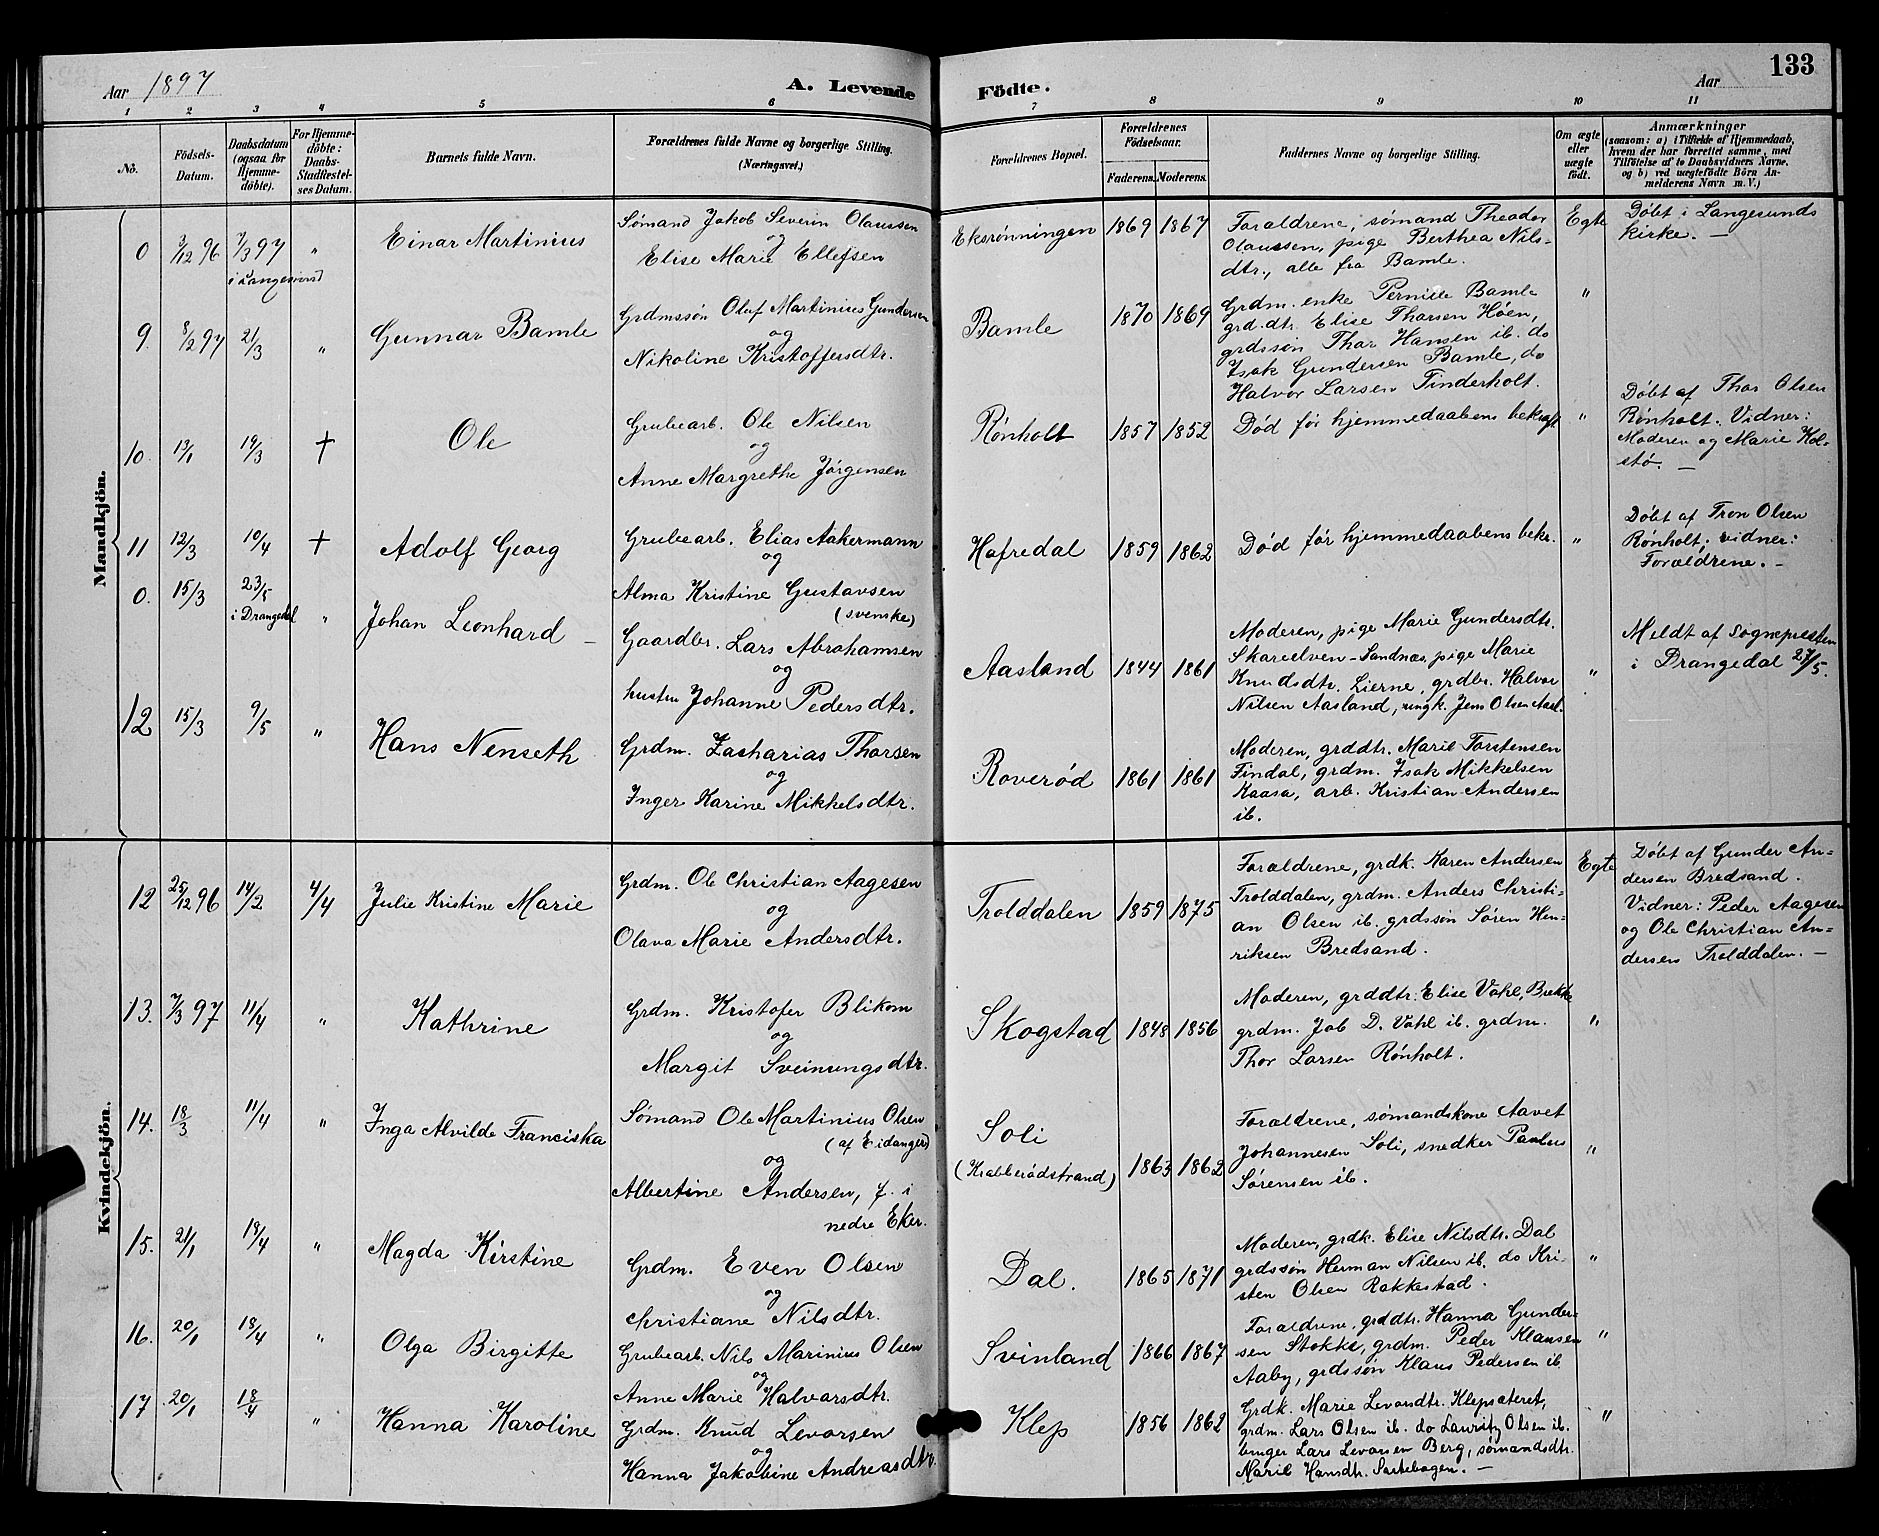 133
Aar 1897
A. Levende Födte.
Aar
1 2 3 4 5 6 7 8 9 10 11
No.
Födsels-
Datum.
Daabsdatum
(ogsaa for
Hjemme-
döbte).
For Hjemme-
döbte:
Daabs-
Stadfæstel-
ses Datum.
Barnets fulde Navn.
Forældrenes fulde Navne og borgerlige Stilling.
(Næringsvei.)
Forældrenes Bopæl.
Forældrenes
Födselsaar.
Faderens. Moderens.
Faddernes Navne og borgerlige Stilling.
Om ægte
eller
uægte
födt.
Anmærkninger
(saasom: a) i Tilfælde af Hjemmedaab,
hvem der har forrettet samme, med
Tilföielse af to Daabsvidners Navne,
og b) ved uægtefödte Börn An-
melderens Navn m. V.)
Mandkjön.
0 3/12 96 7/3 97 "
i Langesund
Einar Martinius
Sømand Jakob Severin Olaussen
og
Elise Marie Ellefsen
Eksrønningen 1869 1867
Forældrene, sømand Theodor
Olaussen, pige Berthea Nils-
dtr., alle fra Bamle.
Egte
Døbt i Langesunds
Kirke. —
9. 8/2 97 21/3 "
Gunnar Bamle
Grdmssøn Oluf Martinius Gundersen
og
Nikoline Kristoffersdtr.
Bamle 1870 1869
Grdm. enke Pernille Bamle
grd.dtr. Elise Tharsen Høen,
grdssøn Thor Hansen ib. do
Isak Gundersen Bamle, do
Halvor Larsen Tinderholt.
"
10. 13/1 19/3 †
Ole
Grubearb. Ole Nilsen
og
Anne Margrethe Jørgensen
Rønholt 1857 1852
Død før hjemmedaabens bekræft
"
Døbt af Thor Olsen
Rønholt. Vidner:
Moderen og Marie Kol-
stø. —
11 12/3 10/4 †
Adolf Georg
Grubearb. Elias Aakermann
og
Alma Kristine Gustavsen
(svenske)
Hafredal 1859 1862
Død før hjemmedaabens bekr.
"
Døbt af Tron Olsen
Rønholt; vidner:
Forældrene. —
0. 15/3 23/5 "
i Drangedal
Johan Leonhard —
Gaardbr. Lars Abrahamsen
og
hustru Johanne Pedersdtr.
Aasland 1844 1861
Moderen, pige Marie Gundersdtr.
Skareelven-Sandnæs, pige Marie
Knudsdtr. Lierne, grdbr. Halvor
Nilsen Aasland, ungk. Jens Olsen Aasl.
"
Meldt af Sognepresten
i Drangedal 27/5.
12 15/3 9/5 "
Hans Nenseth
Grdm. Zacharias Thorsen
og
Inger Karine Mikkelsdtr.
Roverød 1861 1861
Moderen, grddtr. Marie Torstensen
Findal, grdm. Isak Mikkelsen
Kaasa, arb. Kristian Andersen
ib.
Kvindekjön.
12 25/12 96 14/2 4/4
Julie Kristine Marie
Grdm. Ole Christian Aagesen
og
Olava Marie Andersdtr.
Trolddalen 1859 1875
Forældrene, grdk. Karen Andersen
Trolddalen, grdm. Anders Christi-
an Olsen ib. grdssøn Søren Hen-
riksen Bredsand.
Egte
Døbt af Gunder An-
dersen Bredsand.
Vidner: Peder Aagesen
og Ole Christian An-
dersen Trolddalen. —
13. 7/3 97 11/4 "
Kathrine
Grdm. Kristofer Blikom
og
Margit Sveinungsdtr.
Skogstad 1848 1856
Moderen, grddtr. Elise Vahl, Brekke
grdm. Job D. Vahl ib. grdm.
Thor Larsen Rønholt.
"
14. 18/3 11/4 "
Inga Alvilde Franciska
Sømand Ole Martinius Olsen
(af Eidanger)
og
Albertine Andersen, f. i
nedre Eker.
Soli
(Krabberødstrand) 1863 1862
Forældrene, sømandskone Aavet
Johannesen Soli, snedker Paulus
Sørensen ib.
"
15. 21/1 18/4 "
Magda Kirstine
Grdm. Even Olsen
og
Christiane Nilsdtr.
Dal. 1865 1871
Moderen, grdk. Elise Nilsdtr. Dal
grdssøn Herman Nilsen ib. do Kri-
sten Olsen Rakkestad.
"
16. 20/1 18/4 "
Olga Birgitte
Grubearb. Nils Marinius Olsen
og
Anne Marie Halvorsdtr.
Svinland 1866 1867
Forældrene, grddtr. Hanna Gunder-
sen Stokke, grdm. Peder Klausen
Aaby, grdssøn Klaus Pedersen ib.
"
17 20/1 18/4 "
Hanna Karoline
Grdm. Knud Levorsen
og
Hanna Jakobine Andreasdtr.
Klep 1856 1862
Grdk. Marie Levorsdtr. Klepsæteret,
grdm. Lars Olsen ib. do Lauritz Olsen ib.
bruger Lars Levorsen Berg, sømandsdtr.
Marie Hansdtr. —
"